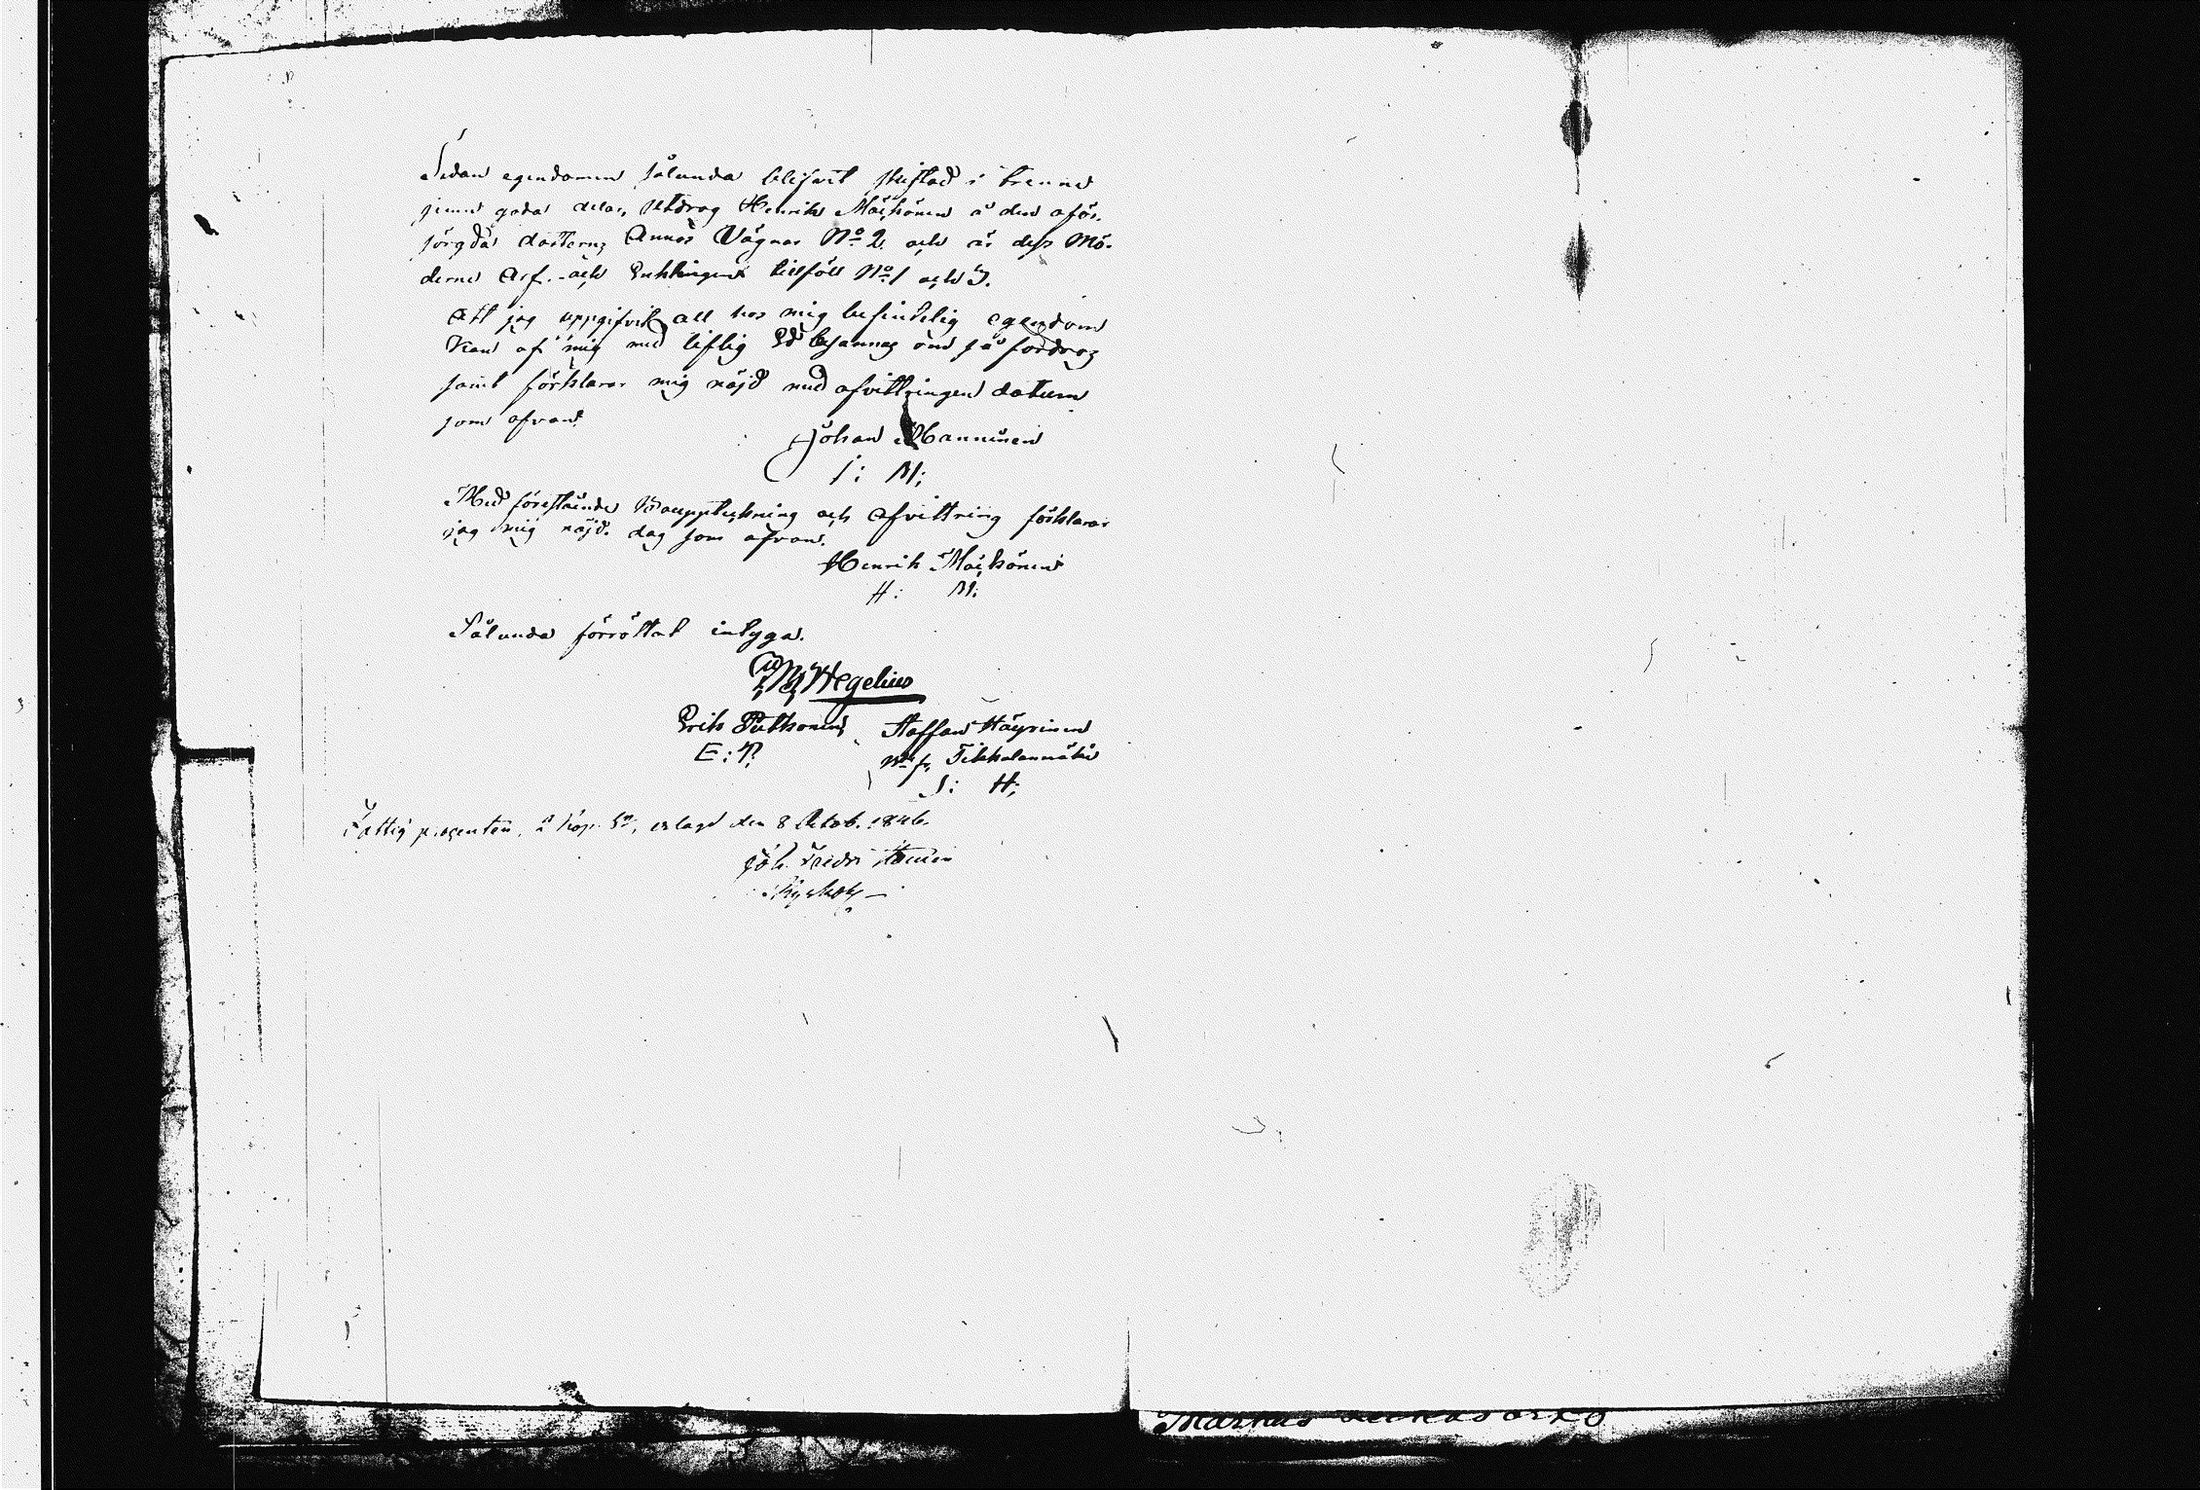 Sedan egendomen sålunda blifvit skiftad i trenne
jemn goda delar, utdrog Henrik Mäihönen å den afför-
sörgda dotterns Annas Vägnar No 2 och å dess Mö-
derne Arf- och Enklingen tillföll No 1 och 3.
Att jag uppgifvit all hos mig befintelig egendom
kan af mig med liflig Ed besannas om så fordras
samt förklarar mig nöjd med afvittringen datum
som ofvan.
Johan Manninen
J: M;
Med förestående Bouppteckning och afvittring förklarar
jag mig nöjd. dag som ofvan.
Henrik Mäihönen
H: M:
Sålunda förrättat intyga.
Wegelius
Erik Puthonen Staffan Häyrinen
E: P. Tikkalanmäki
S: H;
Fattig procenten, 2 kop. Sr, erlagd den 8 Octob. 1846.
Joh. Fredr
Markus